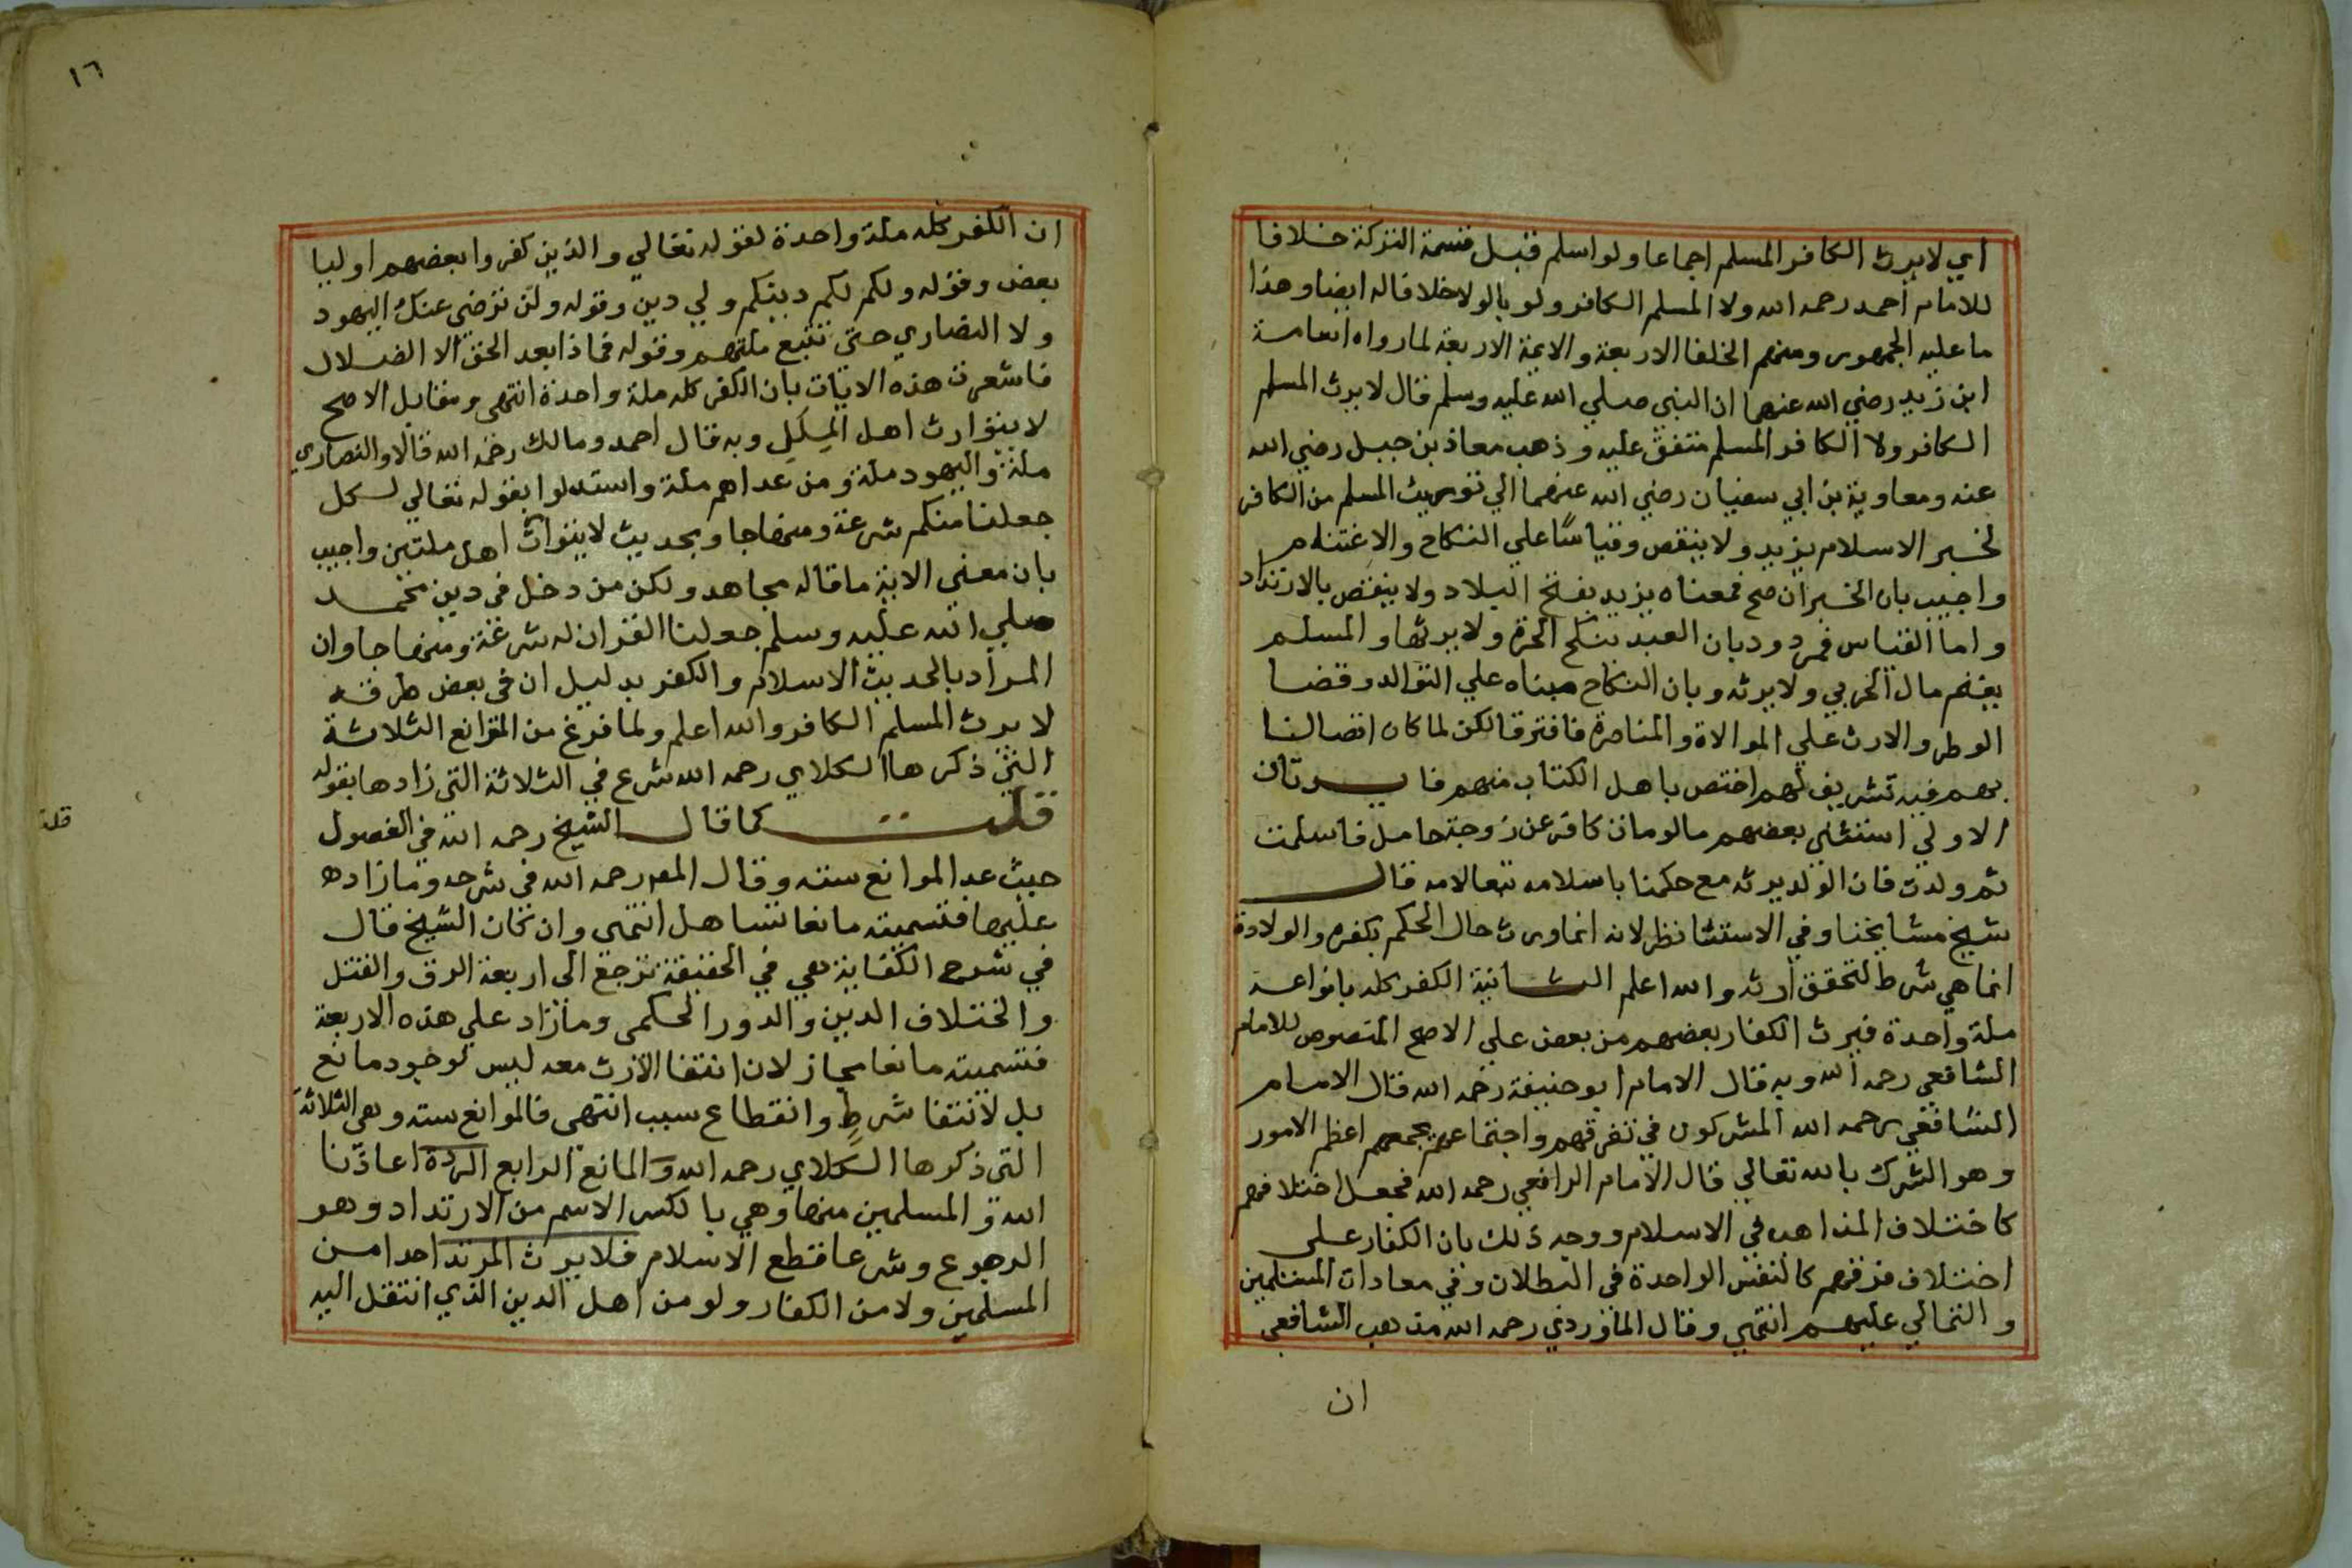 اي لا يرث الكافر المسلم اجماعا ولو اسلم قبل قسمة التركة خلافا
للامام احمد رحمه الله ولا المسلم الكافر ولو بالولا خلافا له ايضا وهذا
ما عليه الجمهور ومنهم الخلفا الاربعة والايمة الاربعة لما رواه اسامة
ابن زيد رضي الله عنهما ان النبي صلي الله عليه وسلم قال لا يرث المسلم
الكافر ولا الكافر المسلم متفق عليه وذهب معاذ بن جبل رضي الله
عنه ومعاوية بن ابي سفيان رضي الله عنهما الي توريث المسلم من الكافر
لخبر الاسلام يزيد ولا ينقص وقياسًا علي النكاح والاغتنام
واجيب بان الخبر ان صح فمعناه يزيد بفتح البلاد ولا ينقص بالارتداد
واما القياس فمردود بان العبد ينكح الحرة ولا يرثها والمسلم
يغنم مال الحربي ولا يرثه وبان النكاح مبناه علي التوالد وقضا
الوطر والارث علي الموالاة والمناصرة فافترقا لكن لما كان اتصالنا
بهم فيه تشريف لهم اختص باهل الكتاب منهم فايدتان
الاولي استثني بعضهم ما لو مات كافر عن زوجة حامل فاسلمت
ثم ولدت فان الولد يرثه مع حكمنا باسلامه تبعا لامه قال
شيخ مشايخنا وفي الاستثنا نظر لانه انما ورث حال الحكم بكفره والولادة
انما هي شرط لتحقق ارثه والله اعلم الثانية الكفر كله بانواعه
ملة واحدة فيرث الكفار بعضهم من بعض علي الاصح المنصوص للامام
الشافعي رحمه الله وبه قال الامام ابو حنيفة رحمه الله قال الامام
الشافعي رحمه الله المشركون في تفرقهم واجتماعهم يجمعهم اعظم الامور
وهو الشرك بالله تعالي قال الامام الرافعي رحمه الله فجعل اختلافهم
كاختلاف المذاهب في الاسلام ووجه ذلك بان الكفار علي
اختلاف فرقهم كالنفس الواحدة في البطلان وفي معادات المسلمين
والتمالي عليهم انتهي وقال الماوردي رحمه الله مذهب الشافعي
ان
١٦
ان الكفر كله ملة واحدة لقوله تعالي والذين كفروا بعضهم اوليا
بعض وقوله ولكم لكم دينكم ولي دين وقوله ولن ترضي عنك اليهود
ولا النصاري حتي تتبع ملتهم وقوله فماذا بعد الحق الا الضلال
فاشعرت هذه الايات بان الكفر كله ملة واحدة انتهي ومقابل الاصح
لا يتوارث اهل المِلَلِ وبه قال احمد ومالك رحمه الله قالا والنصاري
ملة واليهود ملة ومن عداهم ملة واستدلوا بقوله تعالي لكل
جعلنا منكم شرعة ومنهاجا وبحديث لا يتواث اهل ملتين واجيب
بان معني الاية ما قاله مجاهد ولكن من دخل في دين محمد
صلي الله عليه وسلم جعلنا القران له شرعة ومنهاجا وان
المراد بالحديث الاسلام والكفر بدليل ان في بعض طرقه
لا يرث المسلم الكافر والله اعلم ولما فرغ من الموانع الثلاثة
التي ذكرها الكلاي رحمه الله شرع في الثلاثة التي زادها بقوله
قلت كما قال الشيخ رحمه الله في الفصول
حيث عد الموانع سته وقال المص رحمه الله في شرحه وما زاده
عليها فتسميته مانعا تساهل انتهي وان كان الشيخ قال
في شرح الكفاية هي في الحقيقة ترجع الي اربعة الرق والقتل
واختلاف الدين والدور الحكمي وما زاد علي هذه الاربعة
فتسميته مانعا مجاز لان انتفا الارث معه ليس لوجود مانع
بل لانتفا شرطٍ وانقطاع سبب انتهي فالموانع سته وهي الثلاثة
التي ذكرها الكلاي رحمه الله والمانع الرابع الردة اعاذنا
الله والمسلمين منها وهي بالكسر الاسم من الارتداد وهو
الرجوع وشرعا قطع الاسلام فلا يرث المرتد احدا من
المسلمين ولا من الكفار ولو من اهل الدين الذي انتقل اليه